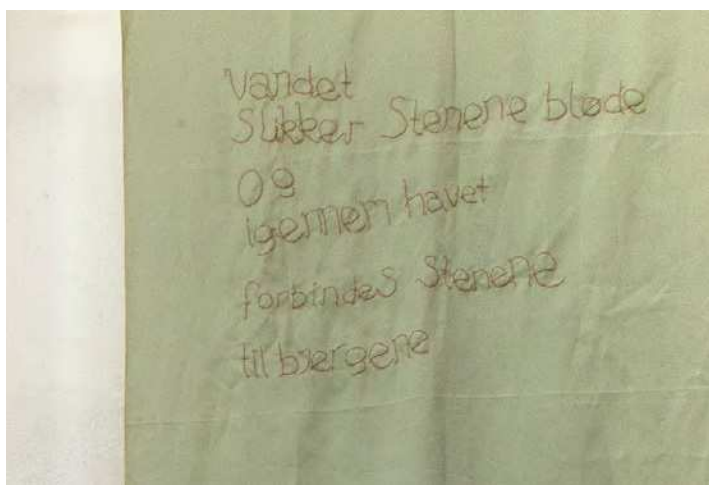 vandet
Slikker Stenene bløde
og
igennem havet
forbindes Stenene
til bjergene